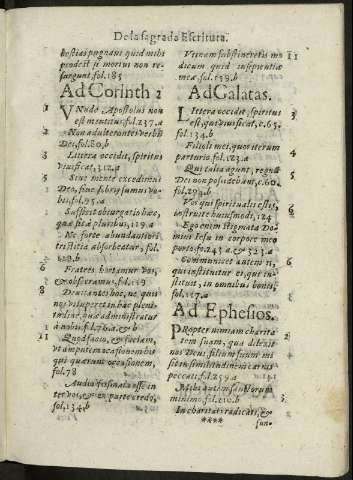 De la sagrada Escritura.
bestias pugnaui quid mihi
prodest si mortui non re
surgunt. fol. 185
Ad Corinth 2
1 VNude Apostolus non
est mentitus. fol. 237. a
2 Non adulterantes verbũ
Dei, fol. 80. b
3 Littera occidit, spiritus
viuificat, 312. a
5 Siue mente excedimus
Deo, siue sobrij sumus vo-
bis. fol. 95. a
2 Sufficit obiurgatio hæc,
quæ fit à pluribus, 119. a
Ne forte abundantiori
tristitia absorbeatur, fol.
b
6 Fratres hortamur vos,
& obsecramus. fol. 119
8 Deuitantes hoc, ne quis
nos vituperet in hac pleni-
tudine, quæ administratur
à nobis. fol. a. & b
11 Quod facio, & faciam,
vt amputem occasionem his
qui quærunt occasionem,
fol. 78
Audio scissuras esse in-
ter vos, & ex parte credo,
fol. 134. b
Vtinam substineretis mo 11
dicum quid insipientiæ
meæ. fol. 139. b
Ad Galatas.
Littera occidit, spiritus
est, qui viuificat, c. 65.
fol. 134. b
Filioli mei, quos iterum
parturio. fol. 123. a
Qui talia agunt, regnũ
Dei non possidebunt, c. 60.
fol. 294. b
Vos qui spirituales estis,
instruite huiusmodi, 124
Ego enim stigmata Do-
mini Iesu in corpore meo
porto. fo. 243. a & 323. a
Communicet autem is,
qui instituitur ei, qui in-
stituit, in omnibus bonis,
fol. a
Ad Ephesios.
PRopter nimiam charita 2
tem suam, qua dilexit
nos Deus, filium suum mi
sit in similitudinem carnis
peccati. fol. 259. a
Mihi autem Sanctorum 3
minimo, fol. 210. b
In charitate radicati, & 3
****
fun-